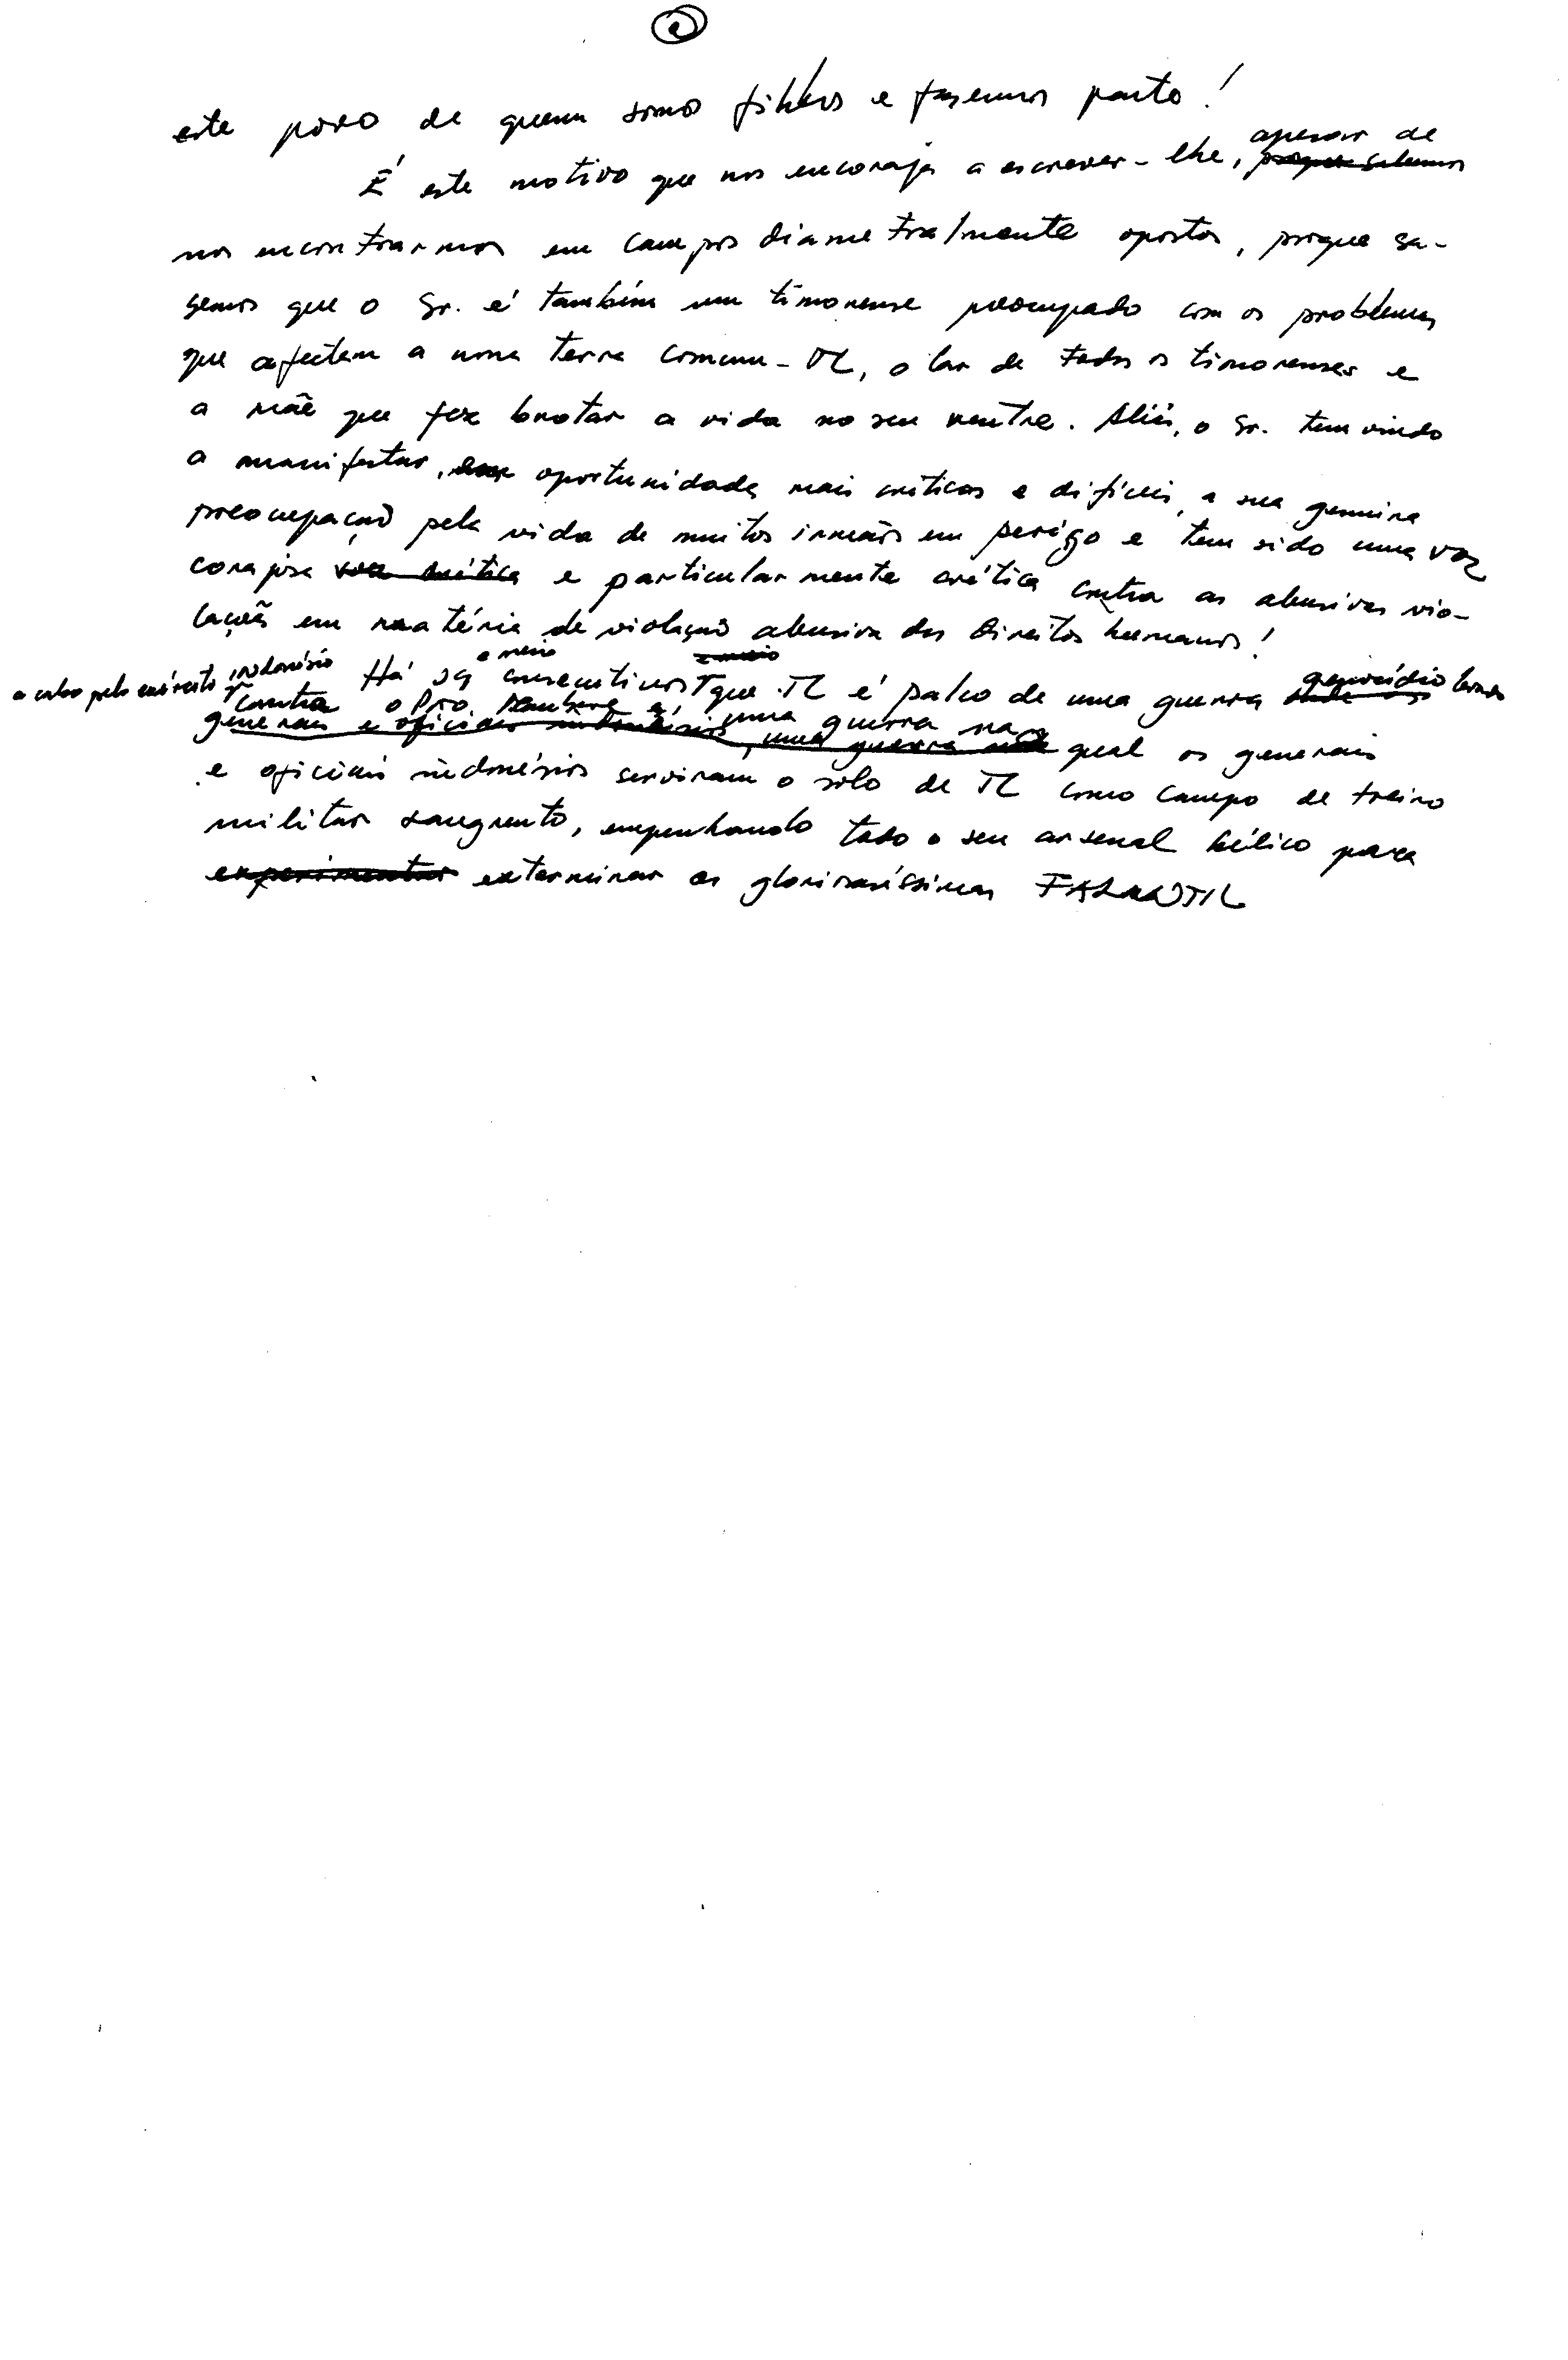 este povo de quem somos filhos e fazemos parte!
É este motivo que nos encoraja a escrever-lhe, apesar de
nos encontrarmos em campos diametralmente opostos, porque sa-
bemos que o Sr. é também um timorense preocupado com os problemas
que afectam a nossa terra comum - TL, o lar de todos os timorenses e
a mãe que fez brotar a vida no seu ventre. Aliás, o Sr. tem vindo
a manifestar, oportunidades mais críticas e difíceis, a sua genuina
preocupação pela vida de muitos irmãos em perigo e tem sido uma voz
corajosa voz crítica e particularmente crítica contra as abusivas vio-
lações em matéria de violação abusiva dos Direitos humanos!
Há e meio consecutivos que TL é palco de uma guerra genocídio levado
a cabo pelo exército indonésio contra o Pvo. Maubere e uma guerra na
generais e oficiais indonésios, uma guerra qual os generais
e oficiais indonésios serviram o solo de TL como campo de treino
militar sangrento, empenhando todo o seu arsenal bélico para
experimentar exterminar as gloriosíssimas FALINTIL